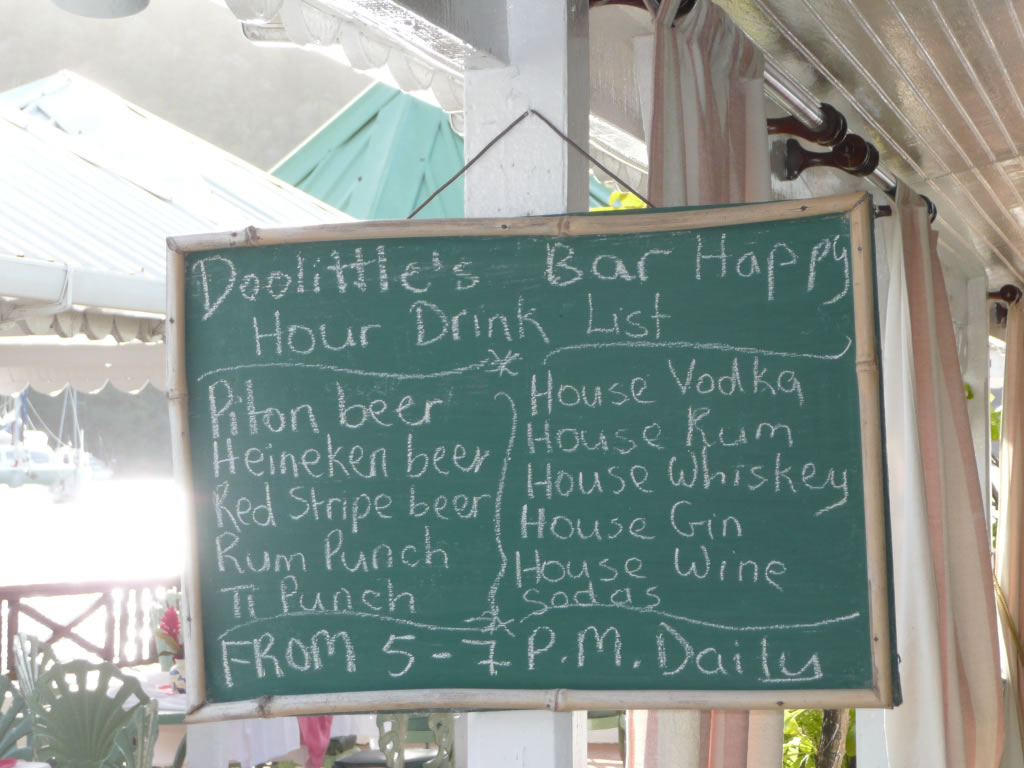 Doolittle's Bar Happy
Hour Drink List
Piton beer
Heineken beer
Red Stripe beer
Rum Punch
Ti Punch
House Vodka
House Rum
House Whiskey
House Gin
House Wine
sodas
FROM 5-7 P.M. Daily